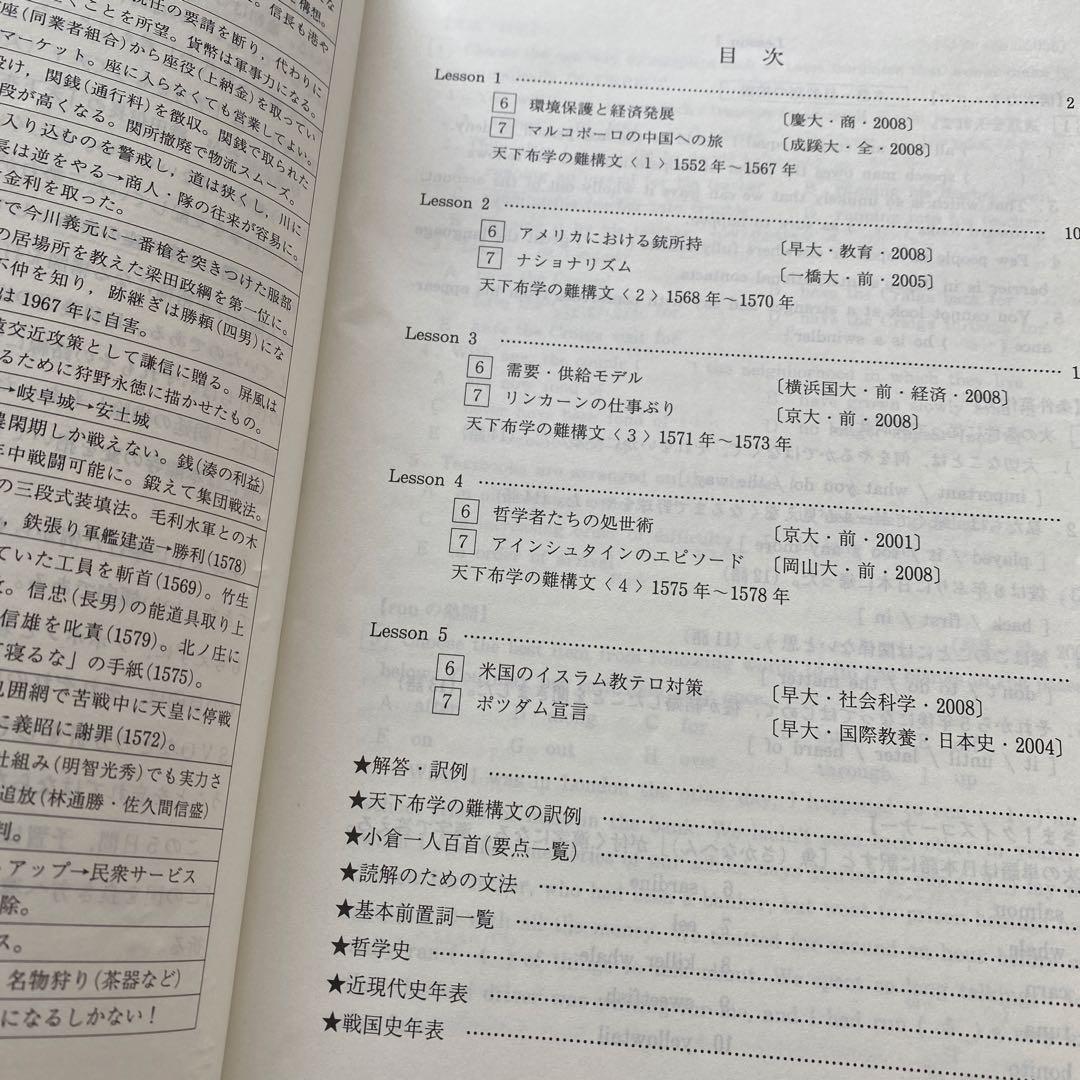 構想
な
信長も港や
就任の要請を断り，代わりに
くことを所望。貨幣は軍事力になる。
座（同業者組合）から座役（上納金）を取ってい
マーケット。座に入らなくても営業してよい。
設け，関銭（通行料）を徴収。関銭で取られた
段が高くなる。関所撤廃で物流スムーズ。
入り込むのを警戒し，道は狭くし，川に
長は逆をやる→商人・隊の往来が容易に。
金利を取った。
で今川義元に一番槍を突きつけた服部
の居場所を教えた梁田政綱を第一位に。
不仲を知り，跡継ぎは勝頼（四男）にな
は1967年に自害。
遠交近攻策として謙信に贈る。屏風は
るために狩野永徳に描かせたもの。
→岐阜城→安土城
農閑期しか戦えない。銭（湊の利益）
年中戦闘可能に。鍛えて集団戦法。
の三段式装填法。毛利水軍との木
，鉄張り軍艦建造→勝利（1578）
ていた工員を斬首（1569）。竹生
。信忠（長男）の能道具取り上
信雄を叱責（1579）。北ノ庄に
「寝るな」の手紙（1575）。
包囲網で苦戦中に天皇に停戦
に義昭に謝罪（1572）。
仕組み（明智光秀）でも実力さ
追放（林通勝・佐久間信盛）
判。
アップ→民衆サービス
除。
ス。
名物狩り（茶器など）
になるしかない！
目 次
Lesson 1 …… 2
6 環境保護と経済発展 〔慶大・商・2008〕
7 マルコポーロの中国への旅 〔成蹊大・全・2008〕
天下布学の難構文〈1〉1552年～1567年
Lesson 2 …… 10
6 アメリカにおける銃所持 〔早大・教育・2008〕
7 ナショナリズム 〔一橋大・前・2005〕
天下布学の難構文〈2〉1568年～1570年
Lesson 3 …… 1
6 需要・供給モデル 〔横浜国大・前・経済・2008〕
7 リンカーンの仕事ぶり 〔京大・前・2008〕
天下布学の難構文〈3〉1571年～1573年
Lesson 4 ……
6 哲学者たちの処世術 〔京大・前・2001〕
7 アインシュタインのエピソード 〔岡山大・前・2008〕
天下布学の難構文〈4〉1575年～1578年
Lesson 5 ……
6 米国のイスラム教テロ対策 〔早大・社会科学・2008〕
7 ポツダム宣言 〔早大・国際教養・日本史・2004〕
★解答・訳例 ……
★天下布学の難構文の訳例 ……
★小倉一人百首（要点一覧） ……
★読解のための文法 ……
★基本前置詞一覧 ……
★哲学史 ……
★近現代史年表 ……
★戦国史年表 ……